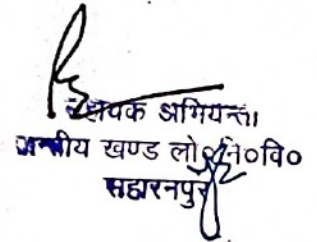 सहायक अभियन्ता
प्रान्तीय खण्ड लो०नि०वि०
सहारनपुर